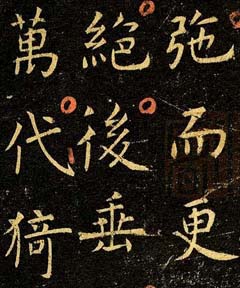 弛而更
絕後垂
萬代猗